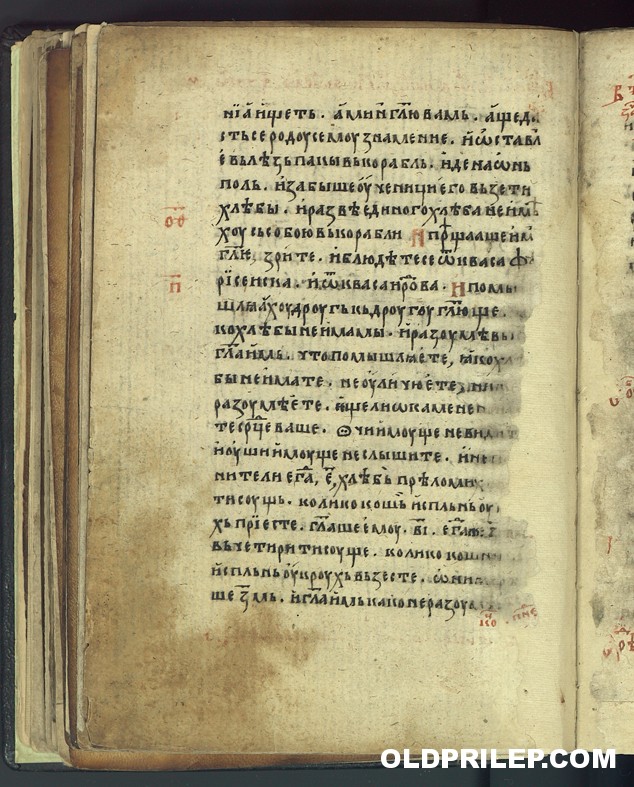 нїа ищеть . аминь гл҃ю вамь . аще д
сть се родоу семоу знаменіе . и ѡставл
ѥ вьлѣзь пакы вь корабль . иде на ѡнь
поль . и забыше оученици его вьзети
хлѣбы . и развѣ единого хлѣба не им
хоу сь собою вь корабли И прѣщааше им
гл҃ѥ, зрите . и блюдѣте се ѿ кваса ф
рїсеиска . и ѿ кваса ирѡва . И помы
шлꙗхоу дроугь кь дроугоу гл҃юще .
ко хлѣбы не имамы . и разоумѣвь
гл҃а имь . что помышлꙗете, ꙗко
бы не имате . не оу ли чюете
разоумѣете . аще ли ѡкаменен
те ср҃це ваше . Ѻчи имоуще не вид
и оуши имоуще не слышите . и
мнители егда, е҃, хлѣбь прѣломи
тисоущь . колико кошь испльнь оу
хь прїесте . гл҃аше емоу . в҃і . егда
вь четири тисоуще . колико кош
испльнь оукроухь вьзесте . ѡни
ше з҃ мь . и гл҃а имь како не разоу
о҃ѳ
п҃
OLDPRILEP.COM